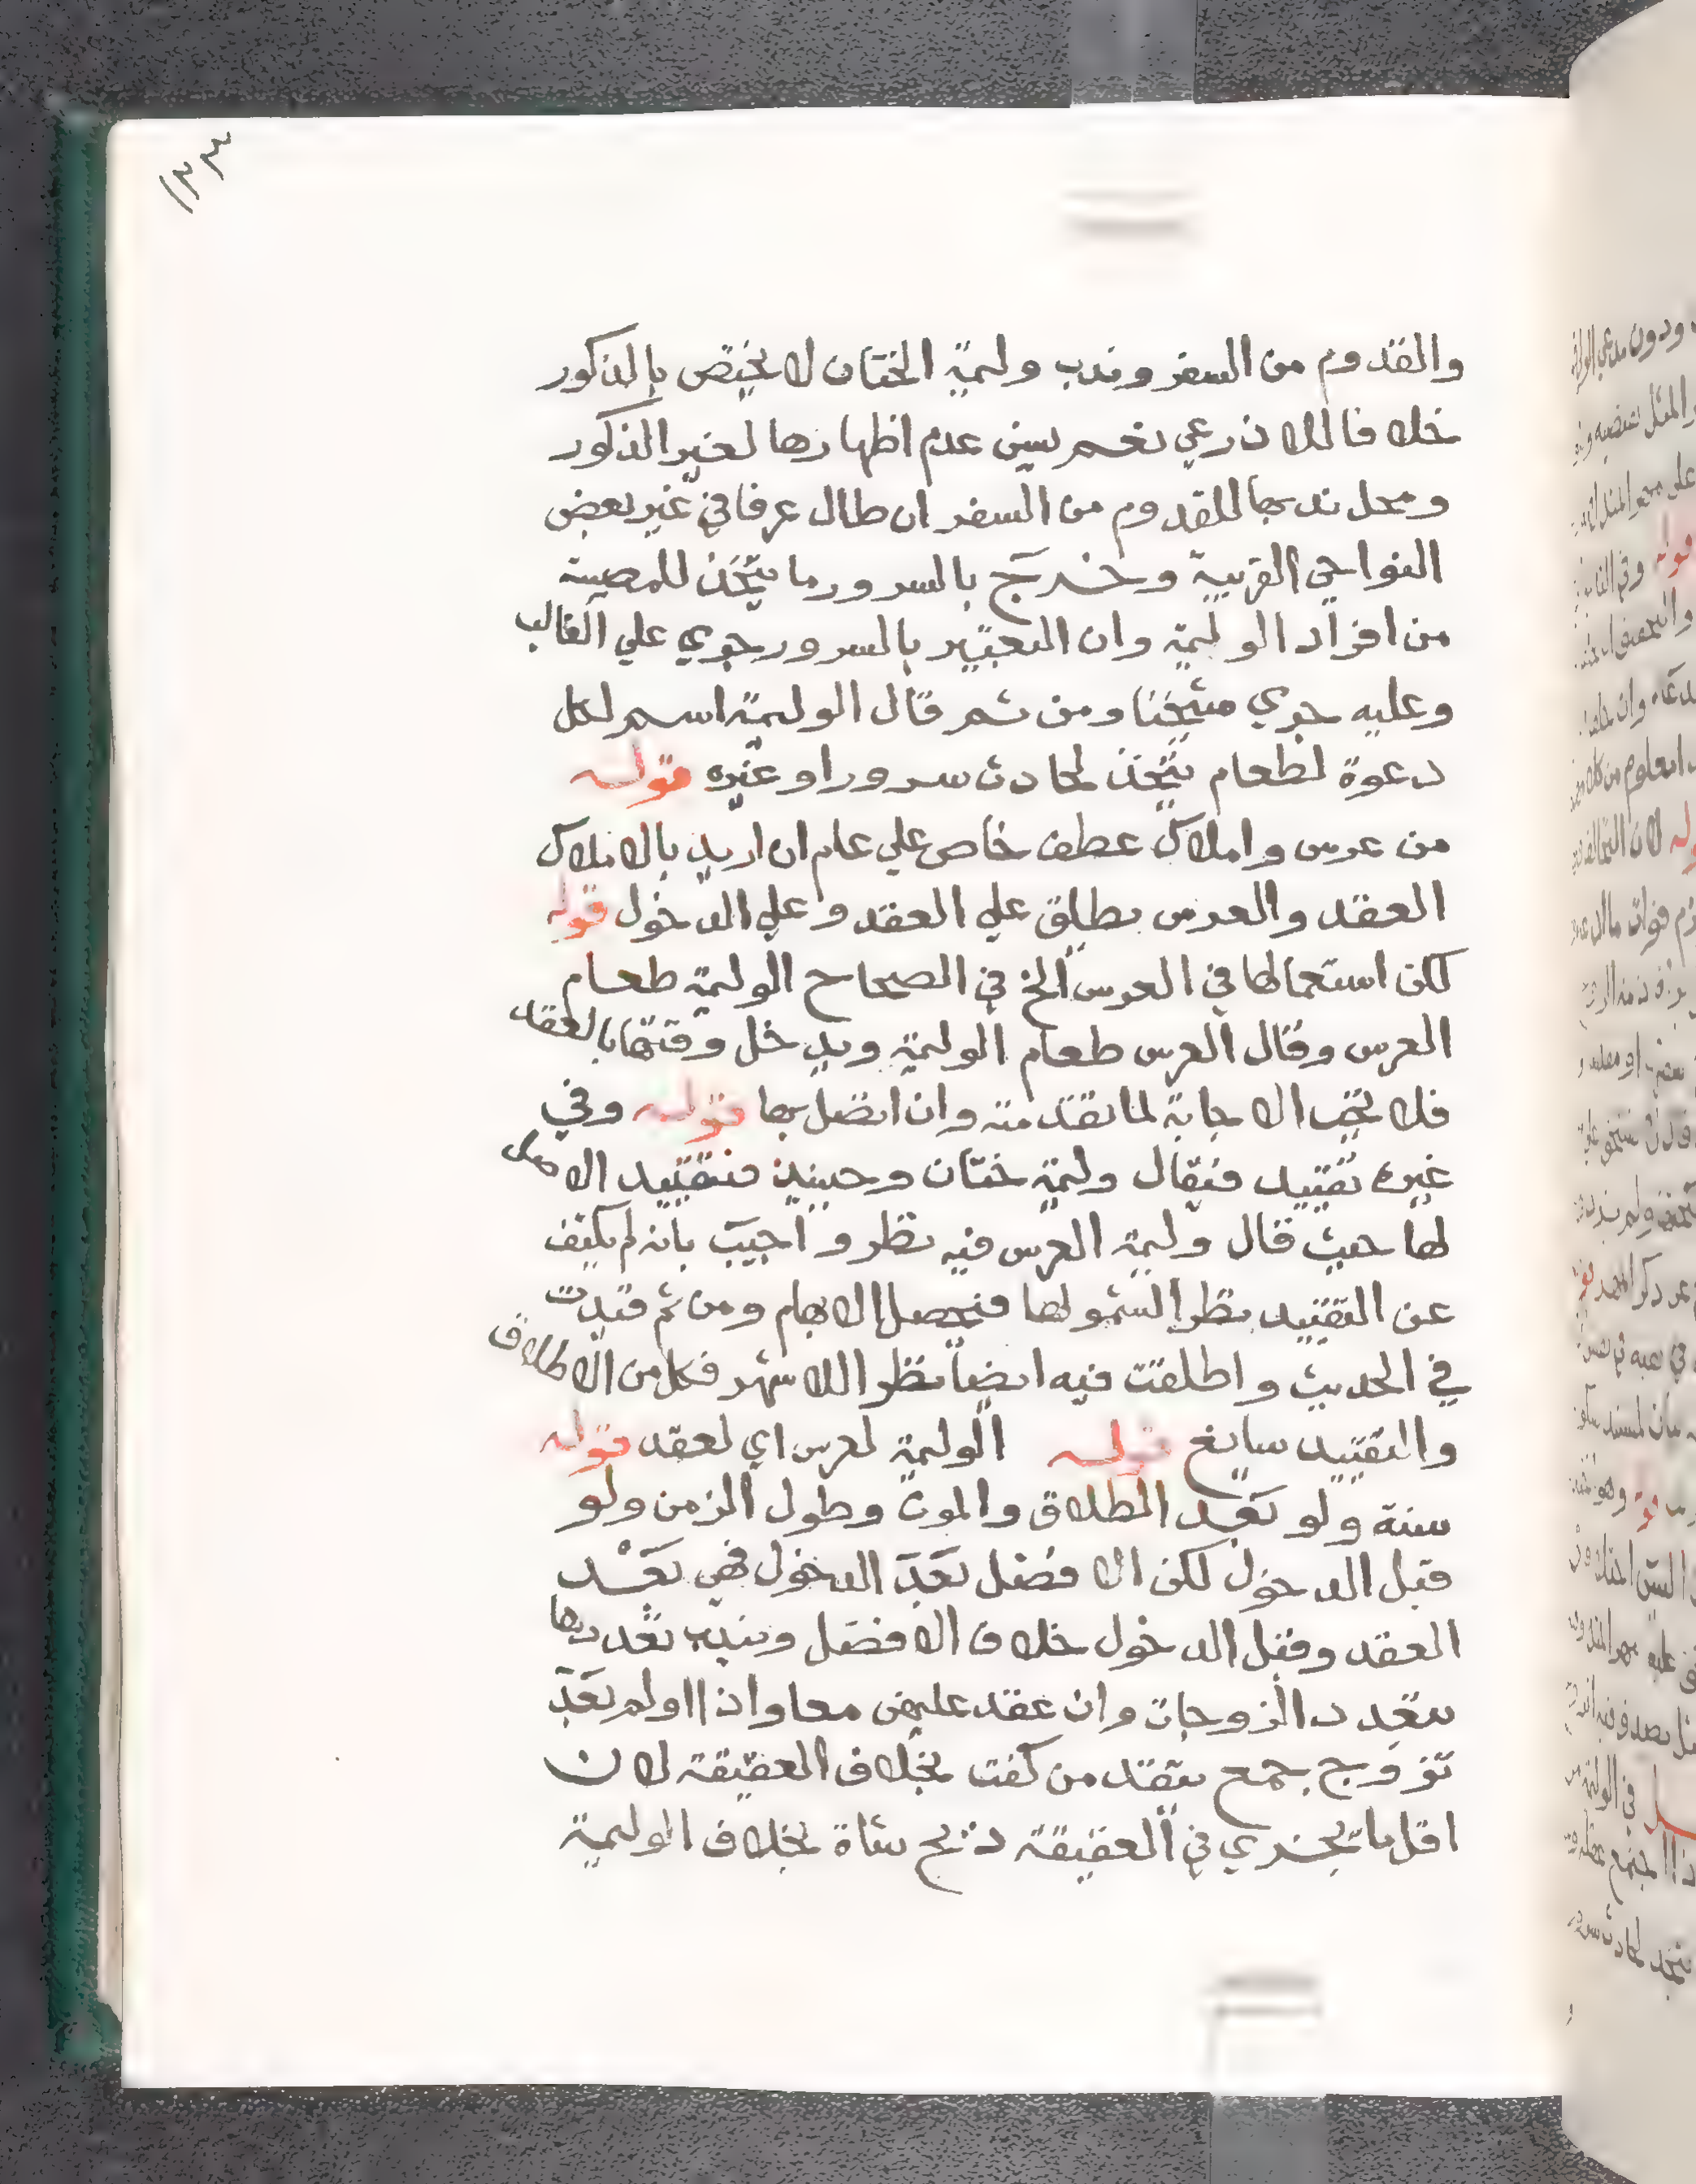 ١٣٣
والقدوم من السفر وندب وليمة الختان لا يختص بالذكور
خلافا للاذرعي نعم يسن عدم اظهارها لغير الذكور
ومحل ندبها للقدوم من السفر ان طال عرفا في غير بعض
النواحي القريبة وخرج بالسرور ما يتخذ للمصيبة
من افراد الوليمة وان التعبير بالسرور جري علي الغالب
وعليه جري شيخنا ومن ثم قال الوليمة اسم لكل
دعوة لطعام يتخذ لحادث سرور او غيره قوله
من عرس واملاك عطف خاص علي عام ان اريد بالاملاك
العقد والعرس يطلق علي العقد وعلي الدخول قوله
لكن استعمالها في العرس الخ في الصحاح الوليمة طعام
العرس وقال العرس طعام الوليمة ويدخل وقتها بالعقد
فلا تجب الاجابة لما تقدمته وان اتصل بها قوله وفي
غيره تقييد فيقال وليمة ختان وحينيذ فتقييد الاصل
لها حيث قال وليمة العرس فيه نظر واجيب بانه لم يكتف
عن التقييد نظرا لشمولها فيحصل الابهام ومن ثم قيدت
في الحديث واطلقت فيه ايضا نظرا للاشهر فكل من الاطلاق
والتقييد سايغ قوله الوليمة لعرس اي لعقد قوله
سنة ولو بعد الطلاق والموت وطول الزمن ولو
قبل الدخول لكن الافضل بعد الدخول فهي بعد
العقد وقبل الدخول خلاف الافضل ويندب تعددها
بتعدد الزوجات وان عقد عليهن معا واذا اولم بعد
تزوج بجمع بقصد من كفت بخلاف العقيقة لان
اقل ما يجزي في العقيقة ذبح شاة بخلاف الوليمة